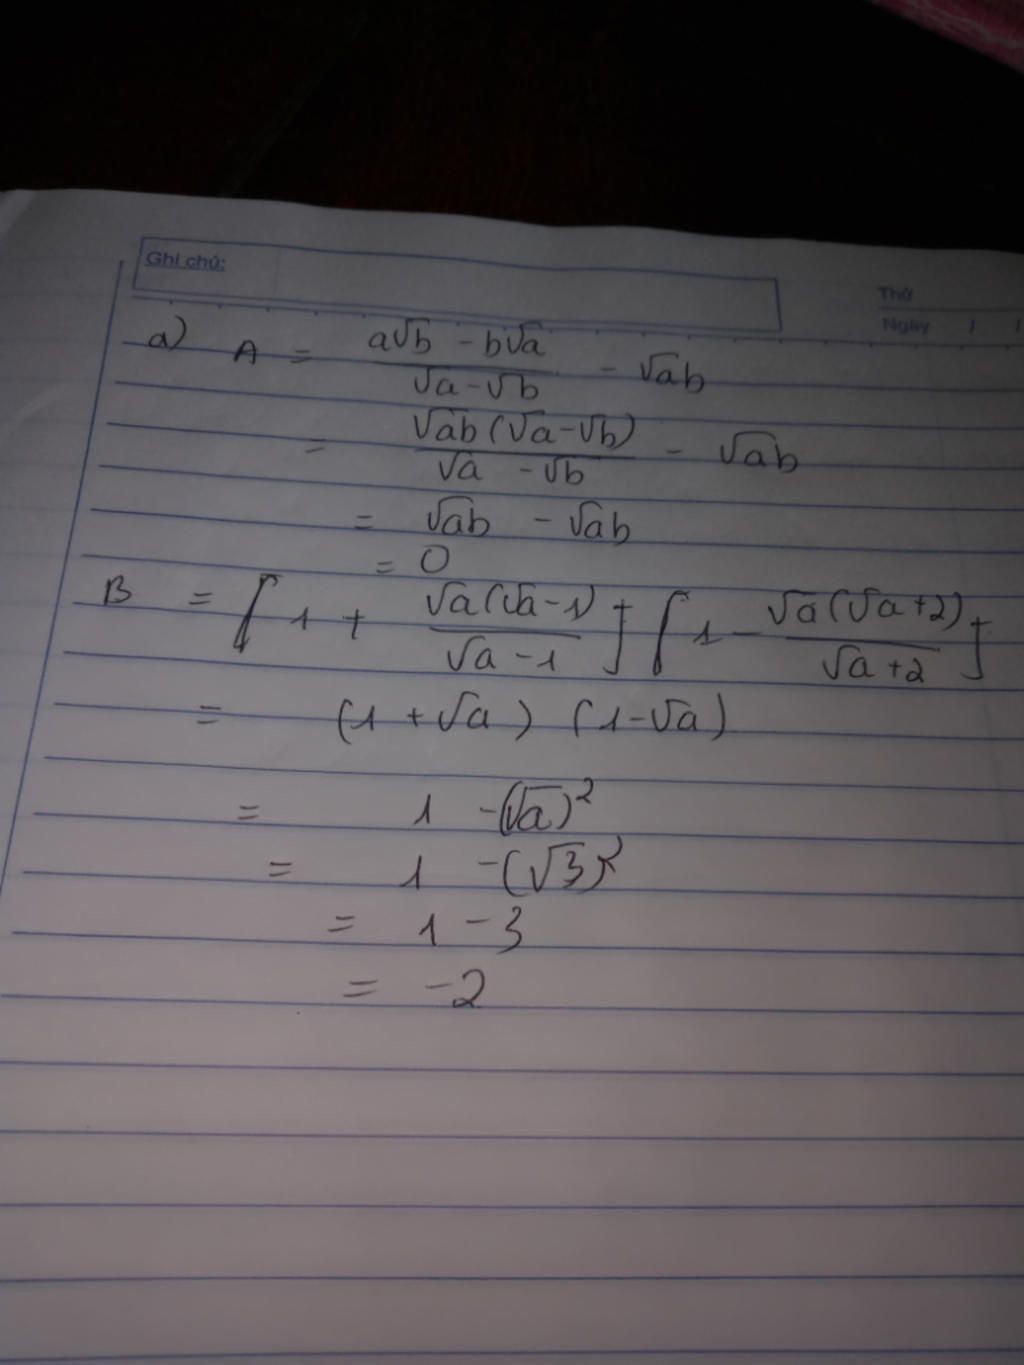 Ghi chú:
Thứ
Ngày / /
a) A = (a√b - b√a)/(√a - √b) - √ab
= √ab (√a - √b)/(√a - √b) - √ab
= √ab - √ab
= 0
B = [1 + √a(√a - 1)/(√a - 1)] [1 - √a(√a + 2)/(√a + 2)]
= (1 + √a) (1 - √a)
= 1 - (√a)²
= 1 - (√3)²
= 1 - 3
= -2